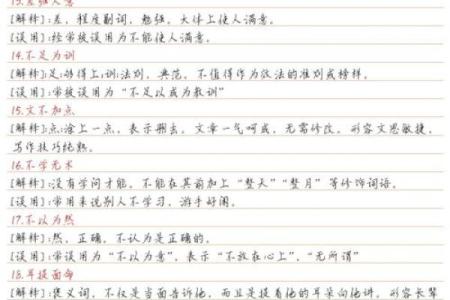 13.差强人意
[解释]:差,程度副词,勉强,大体上使人满意。
[误用]:经常被误用为不能使人满意。
14.不足为训
[解释]:足:够得上;训:法则,典范,不值得作为效法的准则或榜样。
[误用]:常被误用为“不足以成为教训”
15.文不加点
[解释]:点:涂上一点,表示删去,文章一气呵成,无需修改,形容文思敏捷,
写作技巧纯熟。
16.不学无术
[解释]:没有学问才能,不能在其前加上“整天”“整月”等修饰词语。
[误用]:常用来说别人不学习,游手好闲。
17.不以为然
[解释]:然,正确,不认为是正确的。
[误用]:常误用为“不以为意”,表示“不放在心上”,“无所谓”
18.耳提面命
[解释]:褒义词,不仅是当面告诉他,而且是提着他的耳朵向他讲,形容长辈